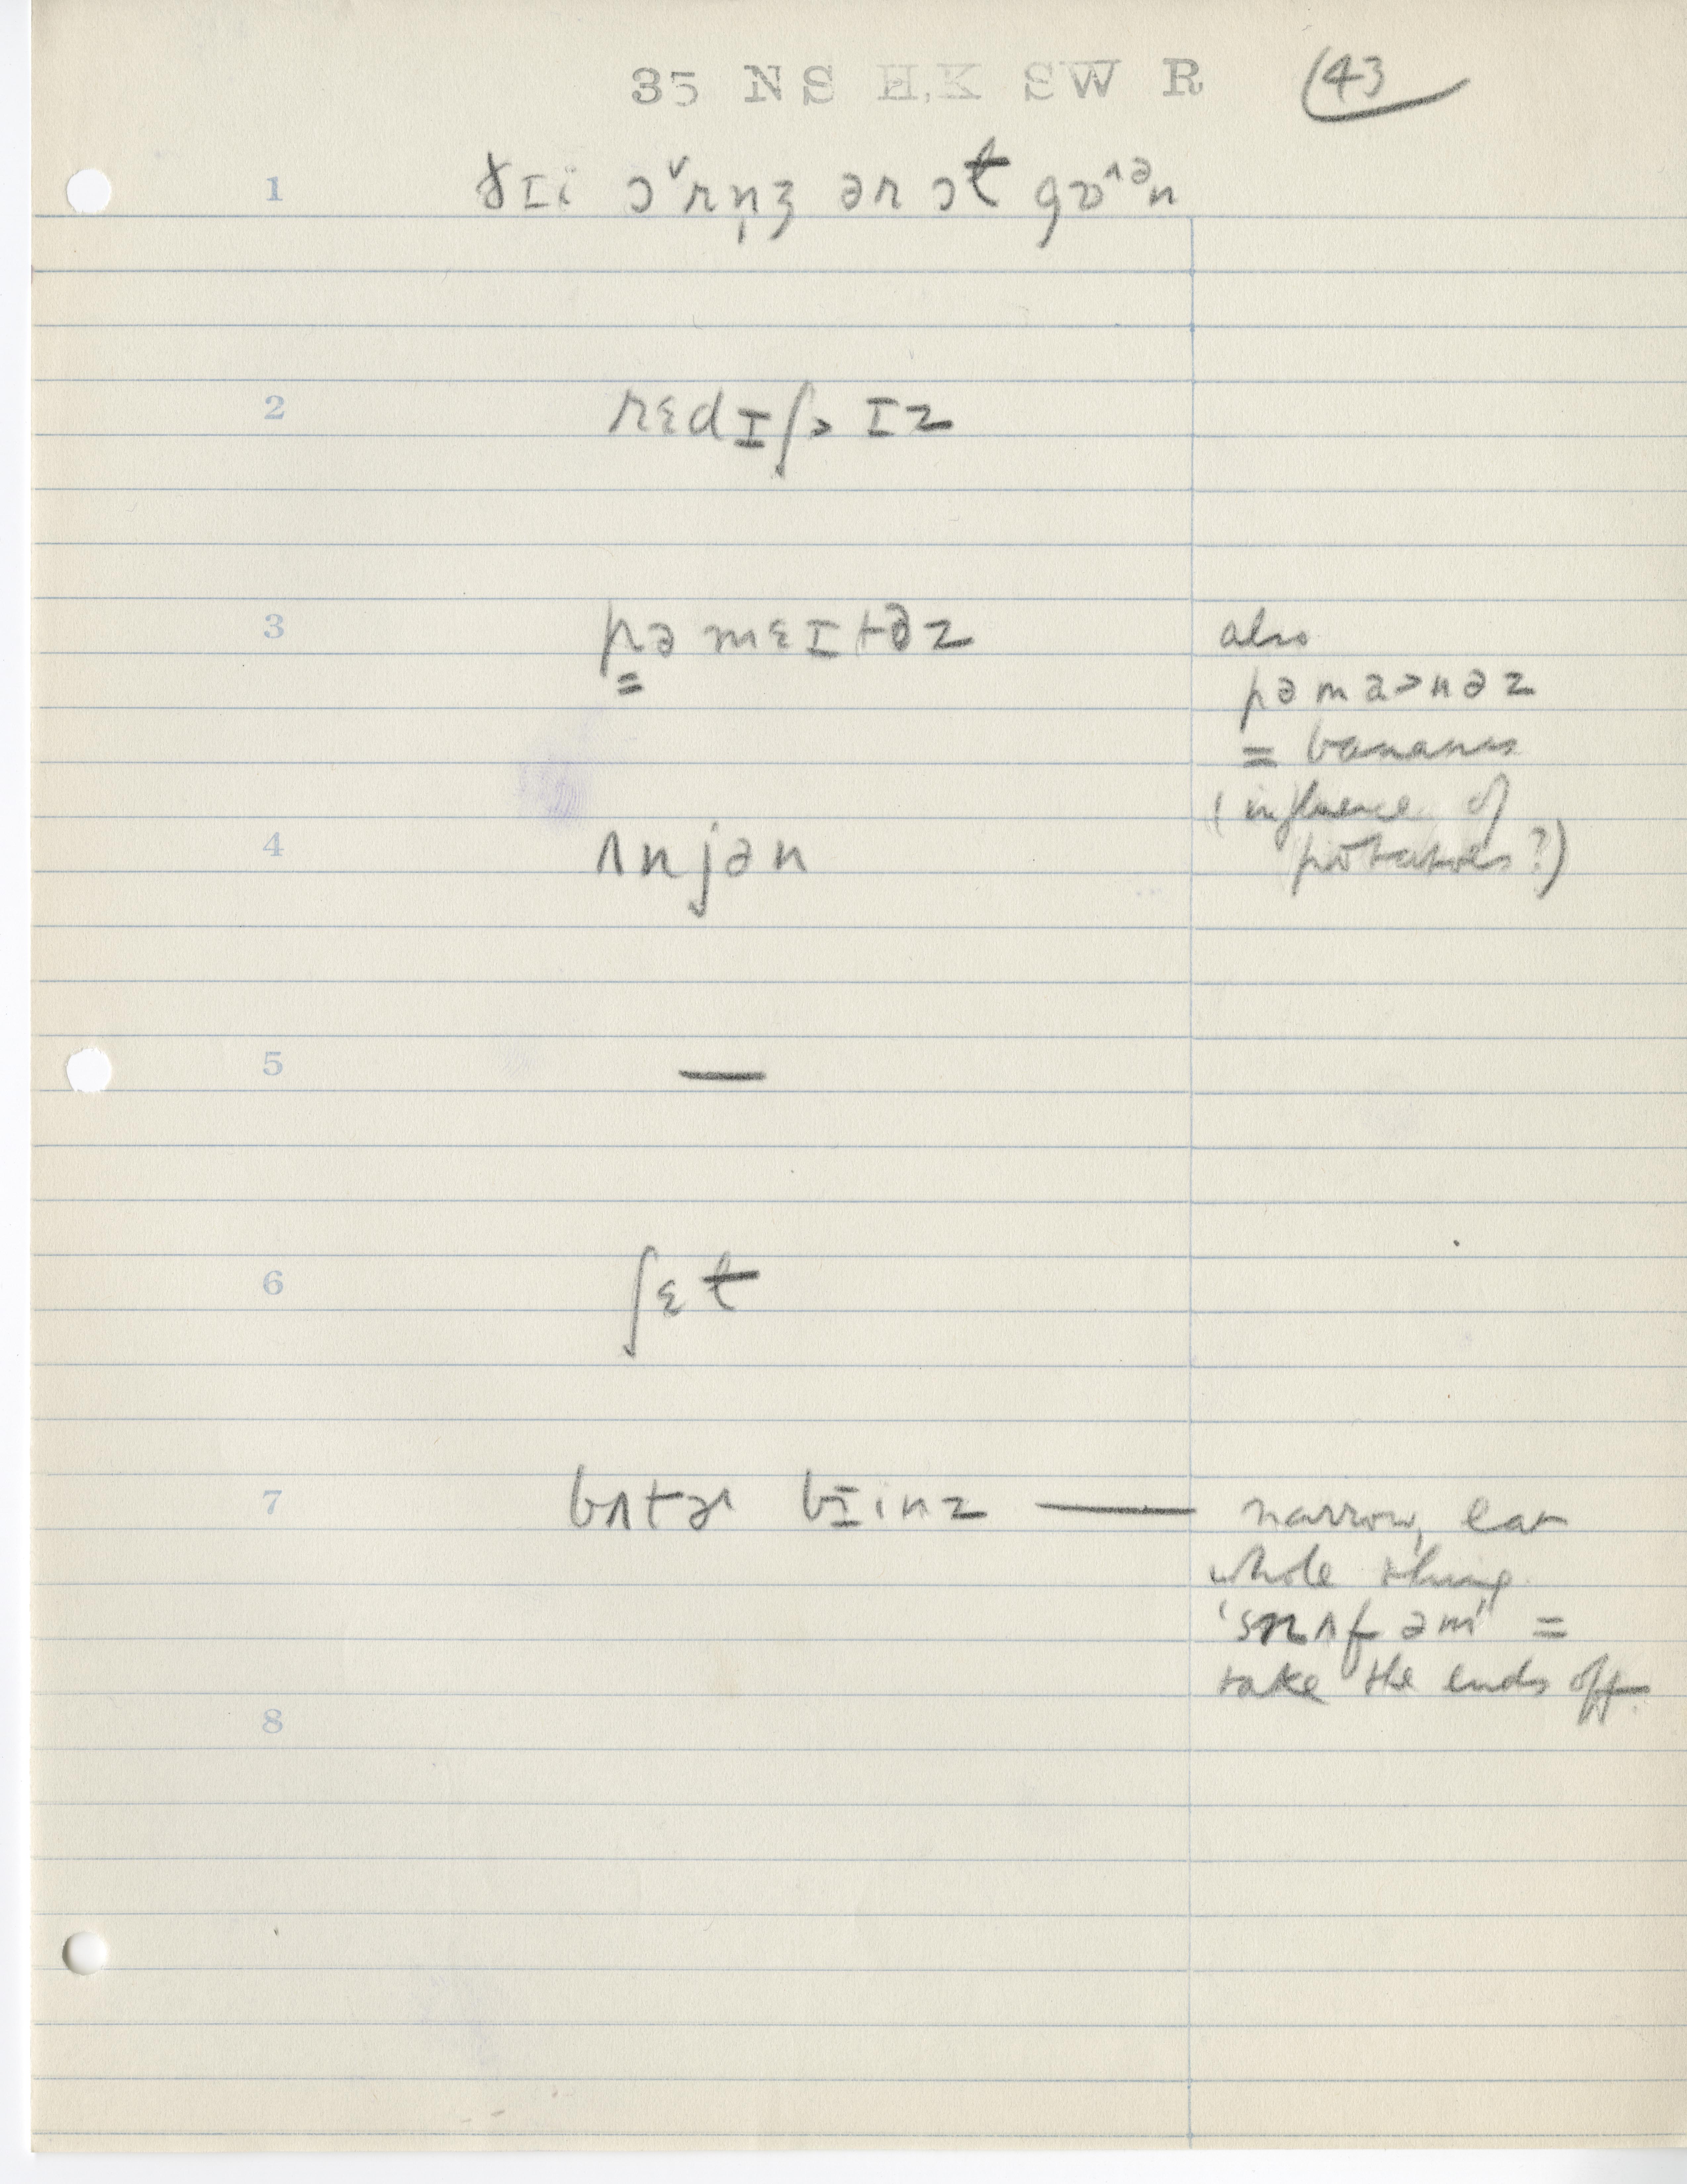 35 NS H.K SW R 43
1 ðɪi ɔˇrn̩ʒ ər ɔɫ gɒ^ən
2 rɛdɪʃ> ɪz
3 pəmɛɪtəz also
pəma>nəz
= bananas
(influence of
4 ʌnjən potatoes?)
5 —
6 ʃɛɫ
7 bʌtɚ bɪinz — narrow, eat
whole thing
'snʌf əm' =
take the ends off.
8